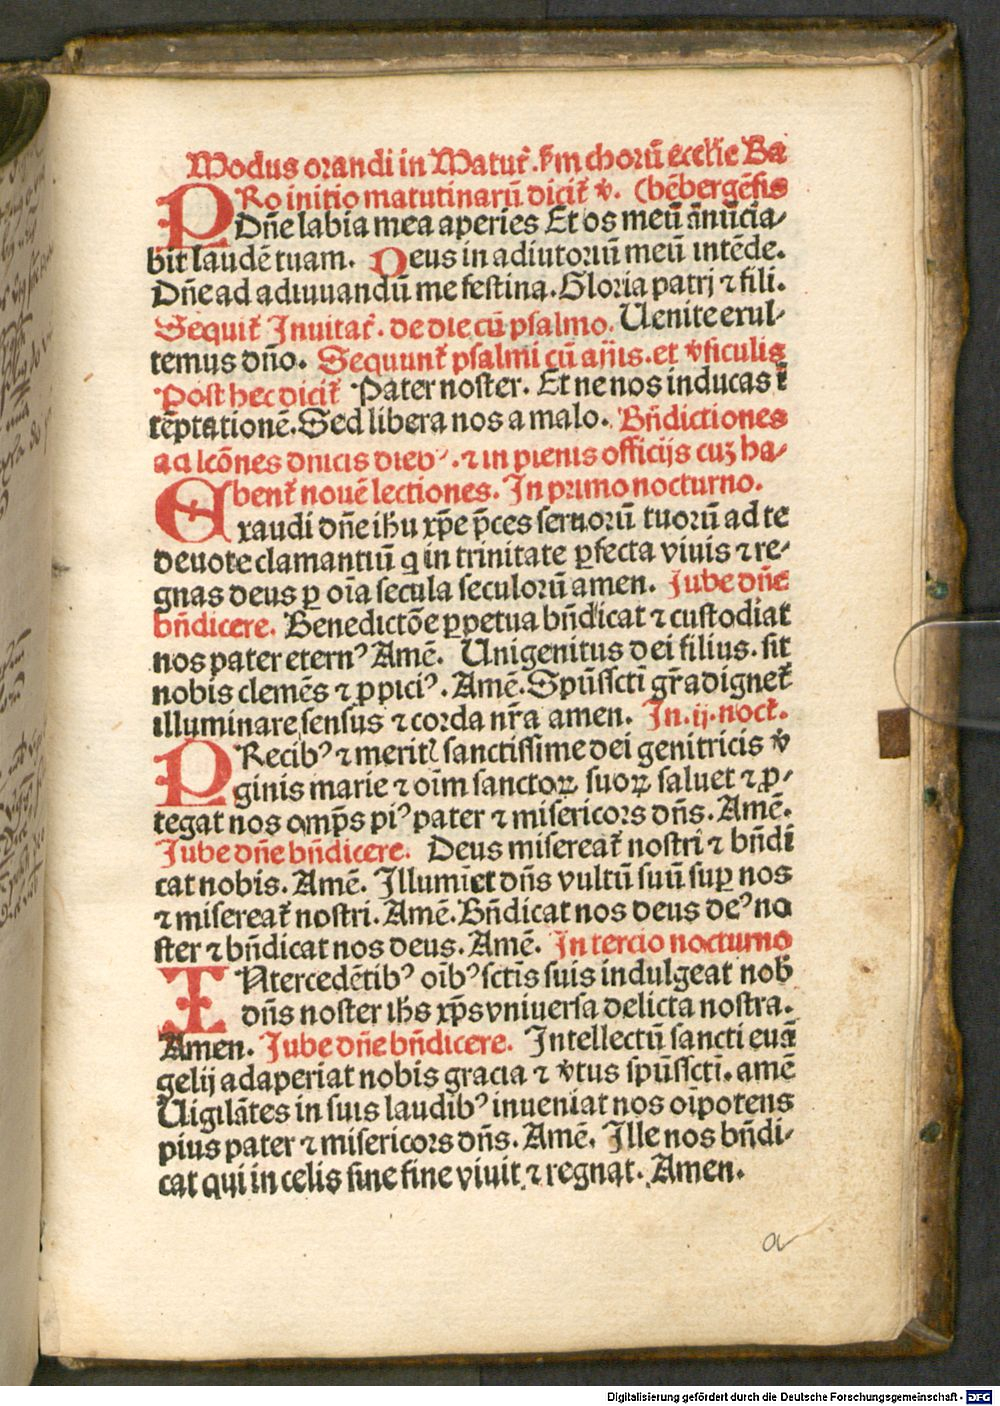 Modus orandi in Matut᷑. ẜm chorū eccl'ie Ba
PRo initio matutinarū dicit᷑ v̓. (bēbergēsis
Dn̄e labia mea aperies Et os meū ānūcia⸗
bit laudē tuam. Deus in adiutoriū meū intēde.
Dn̄e ad adiuuandū me festina. Gloria patri ⁊ fili.
Sequit᷑ Inuitat᷑. de die cū psalmo. Uenite exul⸗
temus dn̄o. Sequunt᷑ psalmi cū ajiis. et v̓siculis
Post hec dicit᷑ Pater noster. Et ne nos inducas ī
tēptationē. Sed libera nos a malo. Bn̄dictiones
ad lcōnes dnicis dieb⁹. ⁊ in plenis officijs cuȝ ha⸗
bent᷑ nouē lectiones. In primo nocturno.
Exaudi dn̄e ihu xp̄e p̄ces seruorū tuorū ad te
deuote clamantiū q in trinitate ꝑfecta viuis ⁊ re⸗
gnas deus ꝑ oīa secula seculorū amen. Jube dn̄e
bn̄dicere. Benedictōe ꝑpetua bn̄dicat ⁊ custodiat
nos pater etern⁹ Amē. Unigenitus dei filius. sit
nobis clemēs ⁊ ꝓpici⁹. Amē. Spūsscti gr̄a dignet᷑
illuminare sensus ⁊ corda nr̄a amen. In. ij. noct᷑.
PRecib⁹ ⁊ meritꝭ sanctissime dei genitricis v̓
ginis marie ⁊ oīm sanctoꝝ suoꝝ saluet ⁊ ꝓ⸗
tegat nos omp̄s pi⁹ pater ⁊ misericors dn̄s. Amē.
Jube dn̄e bn̄dicere. Deus misereat᷑ nostri ⁊ bn̄di
cat nobis. Amē. Illumīet dn̄s vultū suū suꝑ nos
⁊ misereat᷑ nostri. Amē. Bn̄dicat nos deus de⁹ no
ster ⁊ bn̄dicat nos deus. Amē. In tercio nocturno
INtercedētib⁹ oīb⁹ sctīs suis indulgeat nob̄
dn̄s noster ihs xp̄s vniuersa delicta nostra.
Amen. Jube dn̄e bn̄dicere. Intellectū sancti euā
gelij adaperiat nobis gracia ⁊ v̓tus spūsscti. amē
Uigilātes in suis laudib⁹ inueniat nos oīpotens
pius pater ⁊ misericors dn̄s. Amē. Ille nos bn̄di⸗
cat qui in celis sine fine viuit ⁊ regnat. Amen.
a
Digitalisierung gefördert durch die Deutsche Forschungsgemeinschaft - DFG